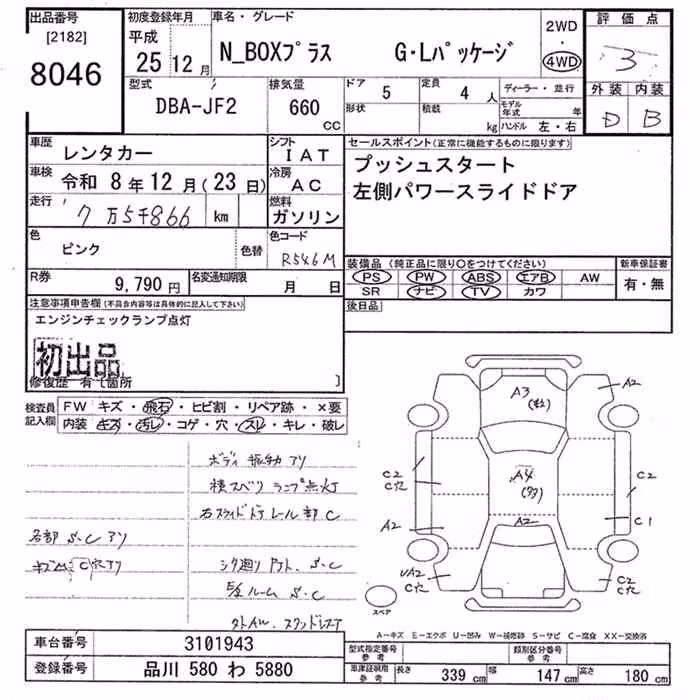 出品番号
[2182]
8046
初度登録年月
平成
25 12 月
車名・グレード
N_BOXプラス G・Lパッケージ
2WD
・
4WD
評価点
3
外装 内装
D B
型式
DBA-JF2
排気量
660
CC
ドア 5
形状
定員 4 人
積載 kg
ディーラー・並行
モデル年式 年
ハンドル 左・右
車歴 レンタカー
車検 令和 8年 12月(23日)
走行 7万5千866 km
色 ピンク 色替
シフト IAT
冷房 AC
燃料 ガソリン
色コード R546M
R券 9,790 円
名変通知期限 月 日
セールスポイント(正常に機能するものに限ります)
プッシュスタート
左側パワースライドドア
装備品(純正品に限り〇をつけてください)
PS PW ABS エアB AW
SR ナビ TV カワ
新車保証書
有・無
後日品
注意事項申告欄(不具合内容等は具体的に記入して下さい)
エンジンチェックランプ点灯
初出品
修復歴 有(箇所 )
検査員記入欄
FW キズ・飛石・ヒビ割・リペア跡・×要
内装・キズ・汚レ・コゲ・穴・スレ・キレ・破レ
ボディ振動アリ
横スベリランプ点灯
右スライドドアレール部C
各部 S、C アリ
C穴アリ
S、C
ルーム S、C
A3
A2
A4
A2
C2
C穴
A2
C2
C1
UA2
C穴
C2
C穴
スペア
A-キズ E-エクボ U-凹み W-補修跡 S-サビ C-腐食 XX-交換済
車台番号 3101943
登録番号 品川 580 わ 5880
型式指定番号
参考
類別区分番号
参考
車庫証明用
参考
長さ 339 cm 幅 147 cm 高さ 180 cm